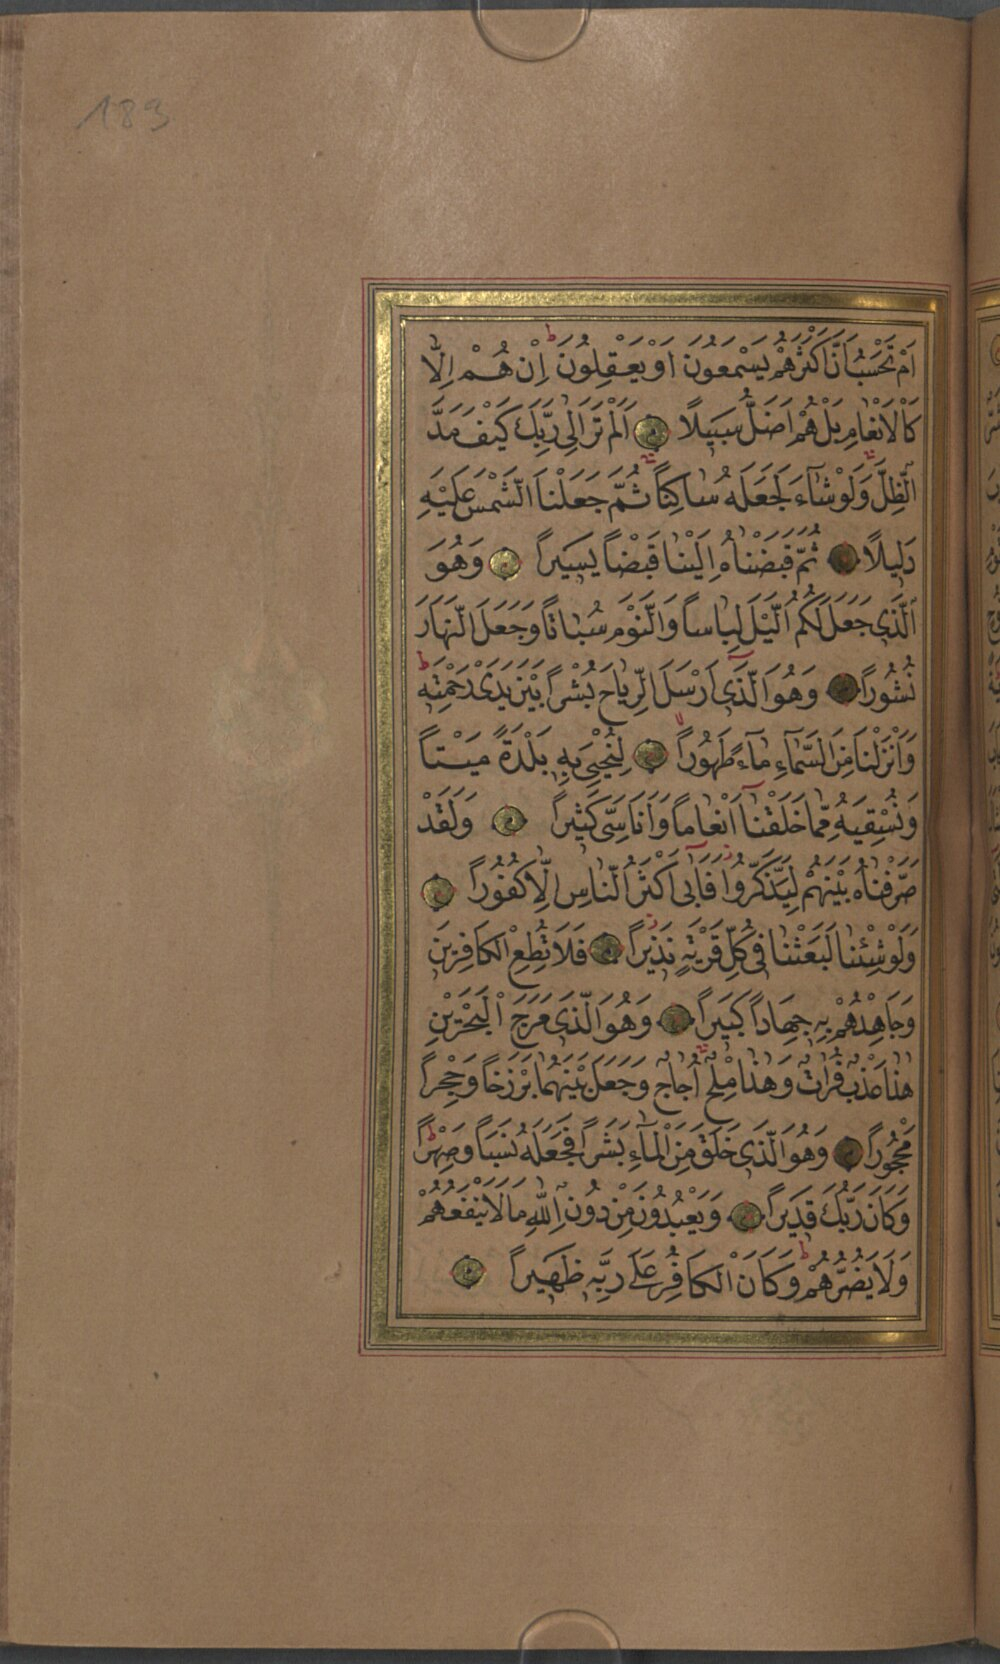 183
اَمْ تَحْسَبُ اَنَّ اَكْثَرَهُمْ يَسْمَعُونَ اَوْ يَعْقِلُونَ ط اِنْ هُمْ اِلَّا
كَالْاَنْعَامِ بَلْ هُمْ اَضَلُّ سَبِيلًا اَلَمْ تَرَ اِلٰى رَبِّكَ كَيْفَ مَدَّ
الظِّلَّ وَلَوْ شَآءَ لَجَعَلَهُ سَاكِنًا ثُمَّ جَعَلْنَا الشَّمْسَ عَلَيْهِ
دَلِيلًا ثُمَّ قَبَضْنَاهُ اِلَيْنَا قَبْضًا يَسِيرًا وَهُوَ
الَّذِى جَعَلَ لَكُمُ الَّيْلَ لِبَاسًا وَالنَّوْمَ سُبَاتًا وَجَعَلَ النَّهَارَ
نُشُورًا وَهُوَ الَّذِٓى اَرْسَلَ الرِّيَاحَ بُشْرًا بَيْنَ يَدَىْ رَحْمَتِهِ ط
وَاَنْزَلْنَا مِنَ السَّمَآءِ مَآءً طَهُورًا لِنُحْيِىَ بِهِ بَلْدَةً مَيْتًا
وَنُسْقِيَهُ مِمَّا خَلَقْنَآ اَنْعَامًا وَاَنَاسِىَّ كَثِيرًا وَلَقَدْ
صَرَّفْنَاهُ بَيْنَهُمْ لِيَذَّكَّرُوا فَاَبٰٓى اَكْثَرُ النَّاسِ اِلَّا كُفُورًا
وَلَوْ شِئْنَا لَبَعَثْنَا فِى كُلِّ قَرْيَةٍ نَذِيرًا فَلَا تُطِعِ الْكَافِرِينَ
وَجَاهِدْهُمْ بِهِ جِهَادًا كَبِيرًا وَهُوَ الَّذِى مَرَجَ الْبَحْرَيْنِ
هٰذَا عَذْبٌ فُرَاتٌ وَهٰذَا مِلْحٌ اُجَاجٌ وَجَعَلَ بَيْنَهُمَا بَرْزَخًا وَحِجْرًا
مَحْجُورًا وَهُوَ الَّذِى خَلَقَ مِنَ الْمَآءِ بَشَرًا فَجَعَلَهُ نَسَبًا وَصِهْرًا ط
وَكَانَ رَبُّكَ قَدِيرًا وَيَعْبُدُونَ مِنْ دُونِ اللّٰهِ مَا لَا يَنْفَعُهُمْ
وَلَا يَضُرُّهُمْ ط وَكَانَ الْكَافِرُ عَلٰى رَبِّهِ ظَهِيرًا